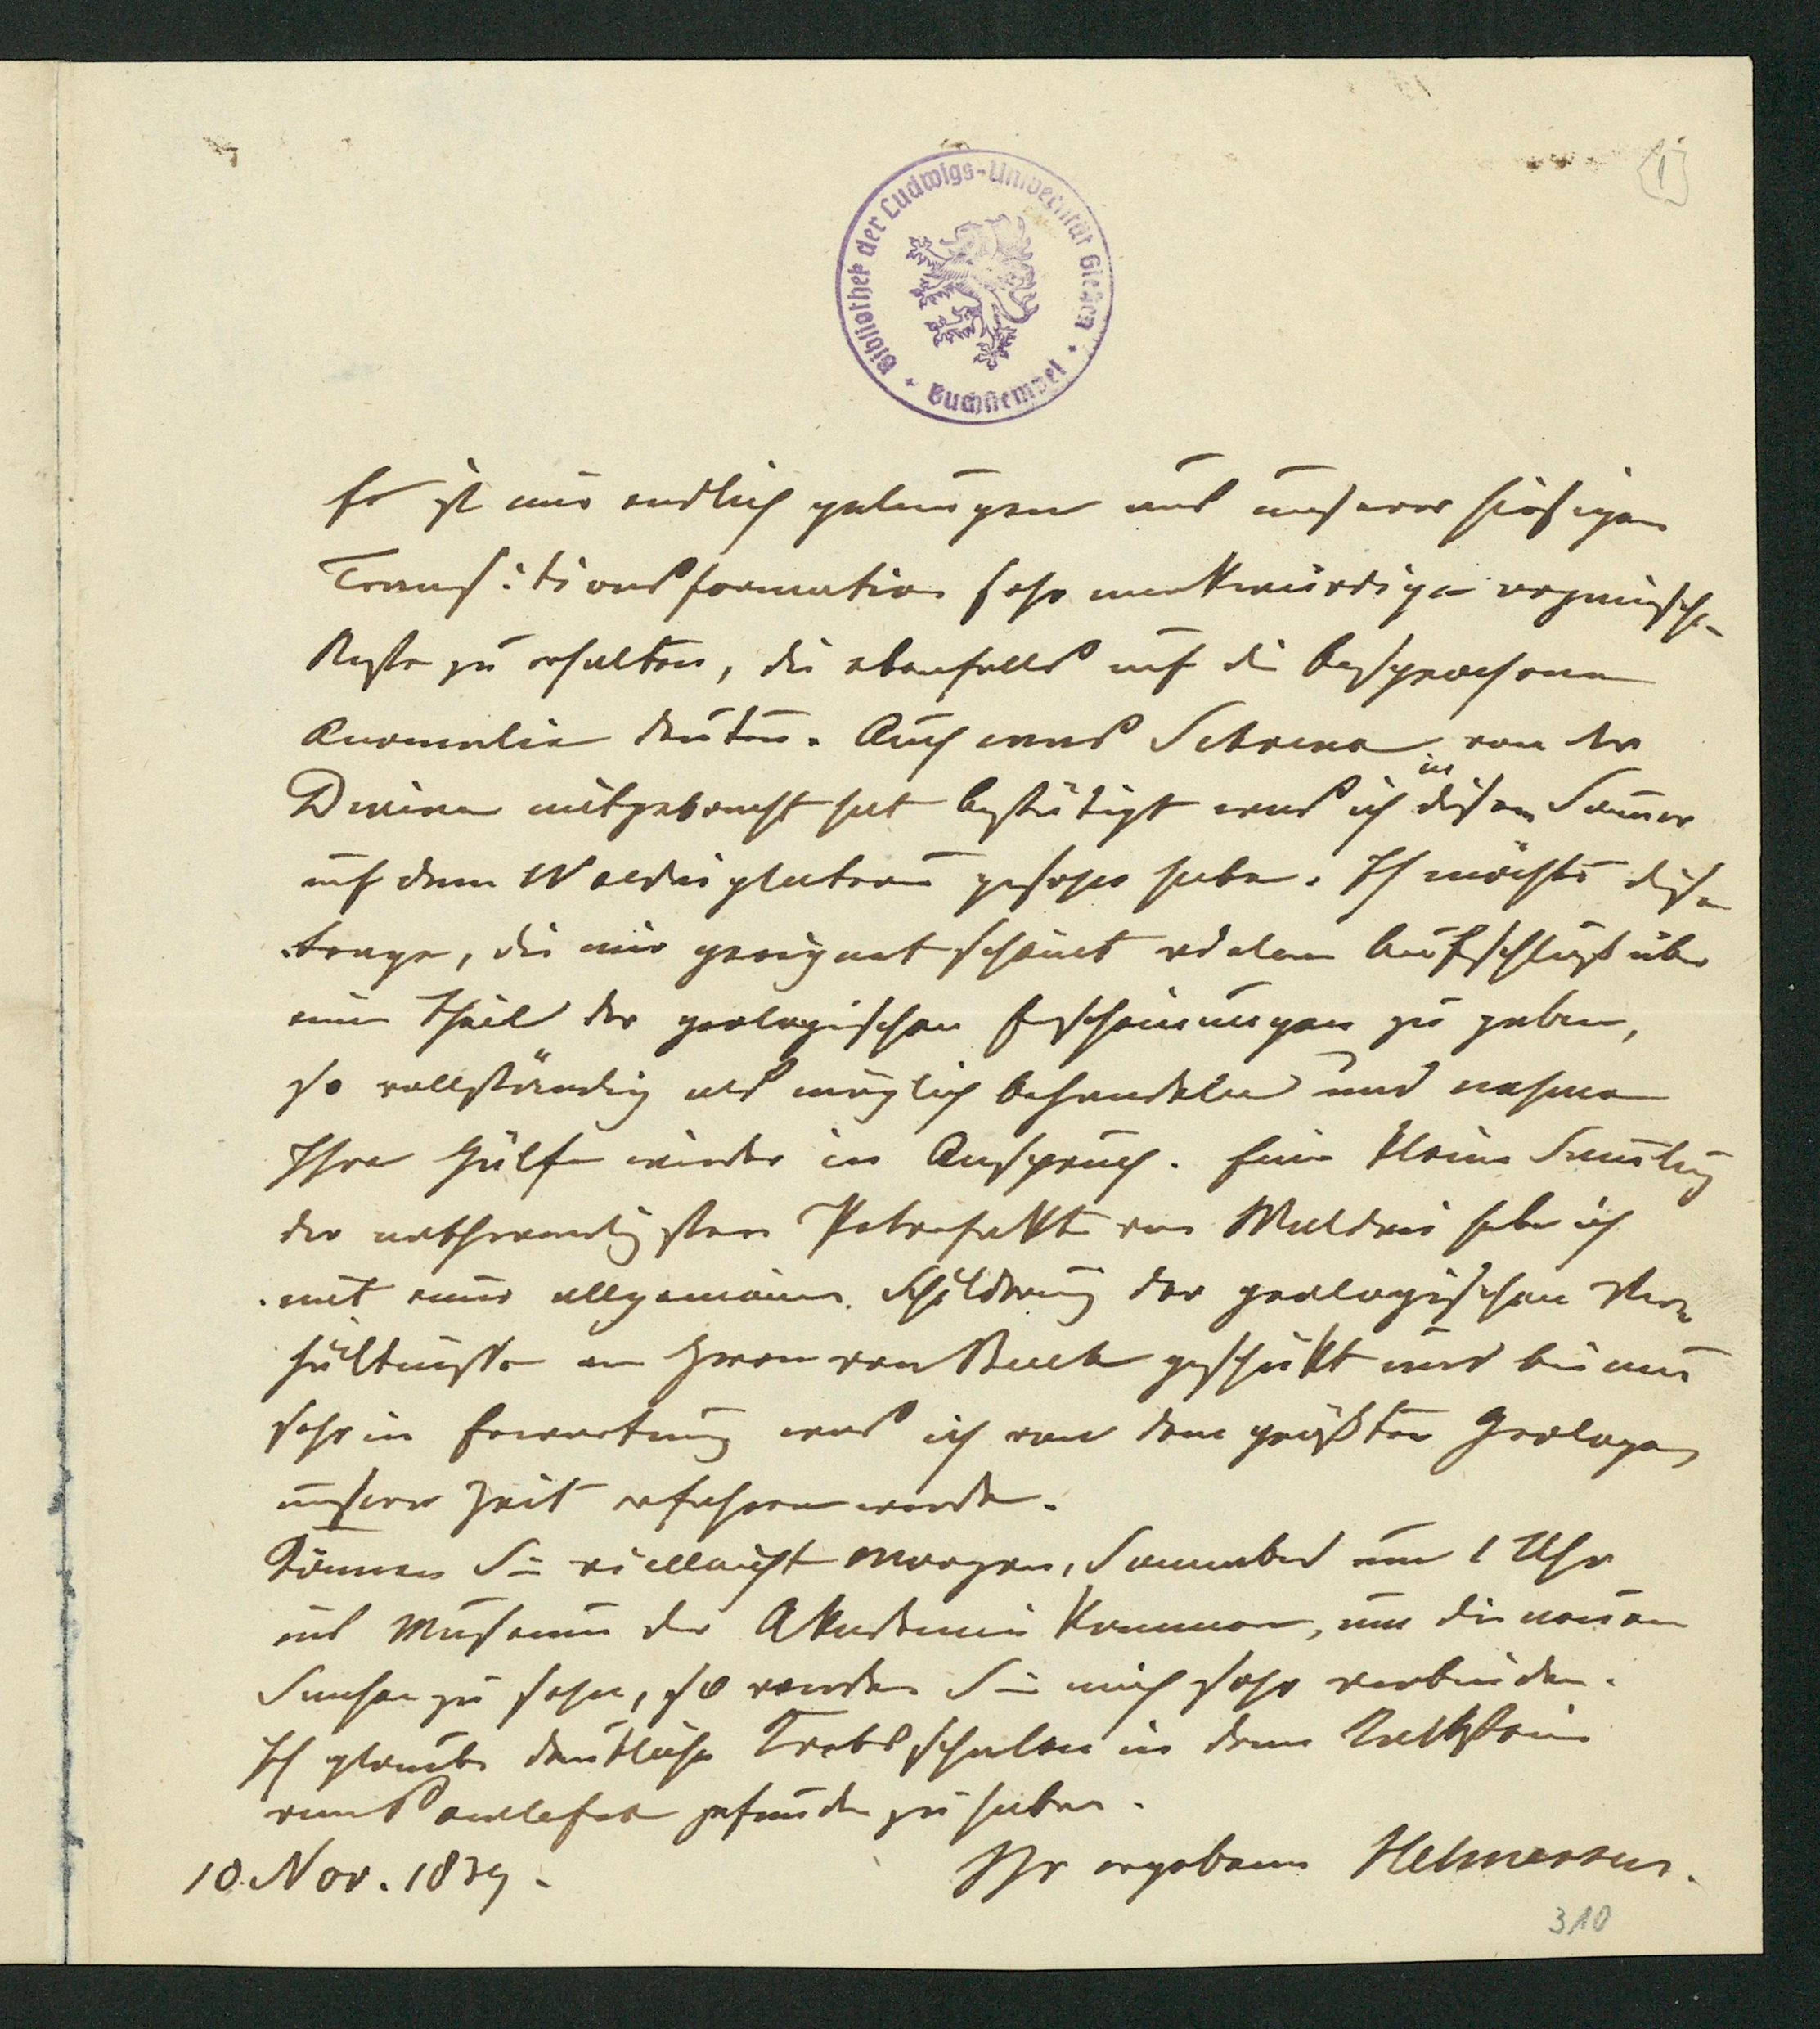 Bibliothek der Ludwigs-Universität Gießen
Buchstempel
1
Es ist mir endlich gelungen aus unserer hiesigen
Transitionsformation sehr merkwürdige organische
Reste zu erhalten, die ebenfalls auf die besprochene
Anomalie deuten. Auch was Schrenk von der
Dwina mitgebracht hat bestätigt was ich in diesem Sommer
auf dem Waldaiplateau gesehen habe. Ich möchte diese
Frage, die mir geeignet scheint Aufschluß über
einen Theil der geologischen Erscheinungen zu geben,
so vollständig als möglich behandeln und nehme
Ihre Hülfe wieder in Anspruch. Eine kleine Sammlung
der nothwendigsten Petrefakte von Waldai habe ich
mit einer allgemeinen Schilderung der geologischen Ver-
hältnisse an Herrn von Buch geschickt und bin nun
sehr in Erwartung was ich von dem größten Geologen
unserer Zeit erfahren werde.
Können Sie vielleicht morgen, Sonnabend um 1 Uhr
ins Museum der Akademie kommen, um die neuen
Sachen zu sehn, so werden Sie mich sehr verbinden.
Ich glaube deutliche Krebsschalen in dem Kalkstein
gefunden zu haben.
10. Nov. 1839.
Ihr ergebener Helmersen.
310